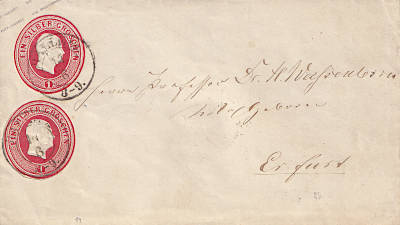 EIN SILBER GROSCHEN
1
8-9.
EIN SILBER GROSCHEN
8-9.
Herrn Professor Dr. H. Weissenborn
Erfurt